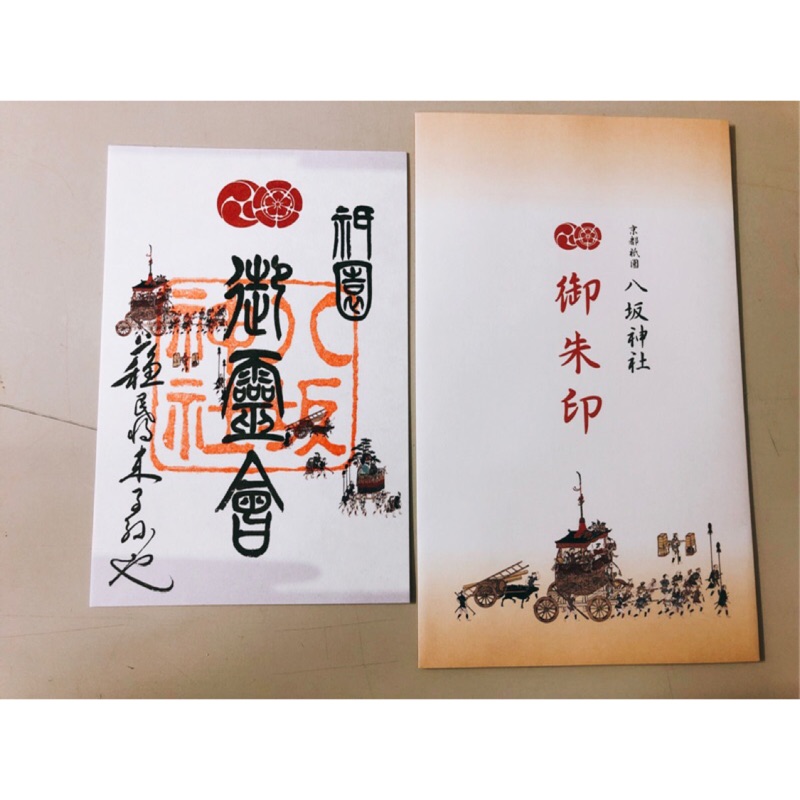 祇園
御靈會
八坂
神社
蘇民将来子孫也
京都祇園 八坂神社
御朱印